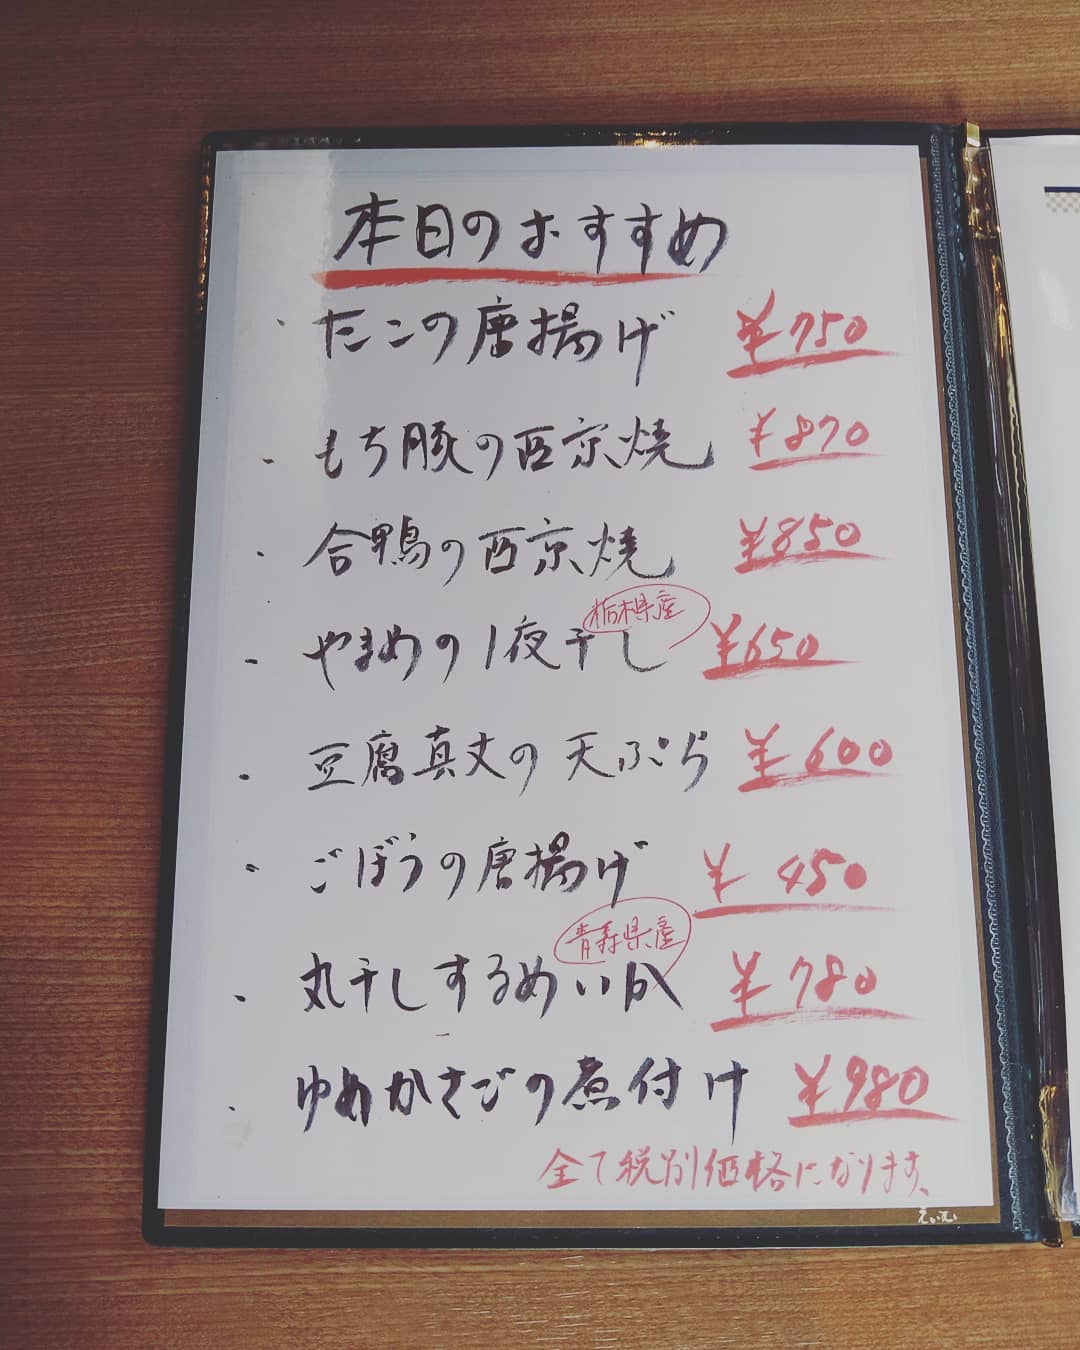 本日のおすすめ
・たこの唐揚げ ¥750
・もち豚の西京焼 ¥870
・合鴨の西京焼 ¥850
栃木県産
・やまめの1夜干し ¥650
・豆腐真丈の天ぷら ¥600
・ごぼうの唐揚げ ¥450
青森県産
・丸干しするめいか ¥780
・ゆめかさごの煮付け ¥980
全て税別価格になります、